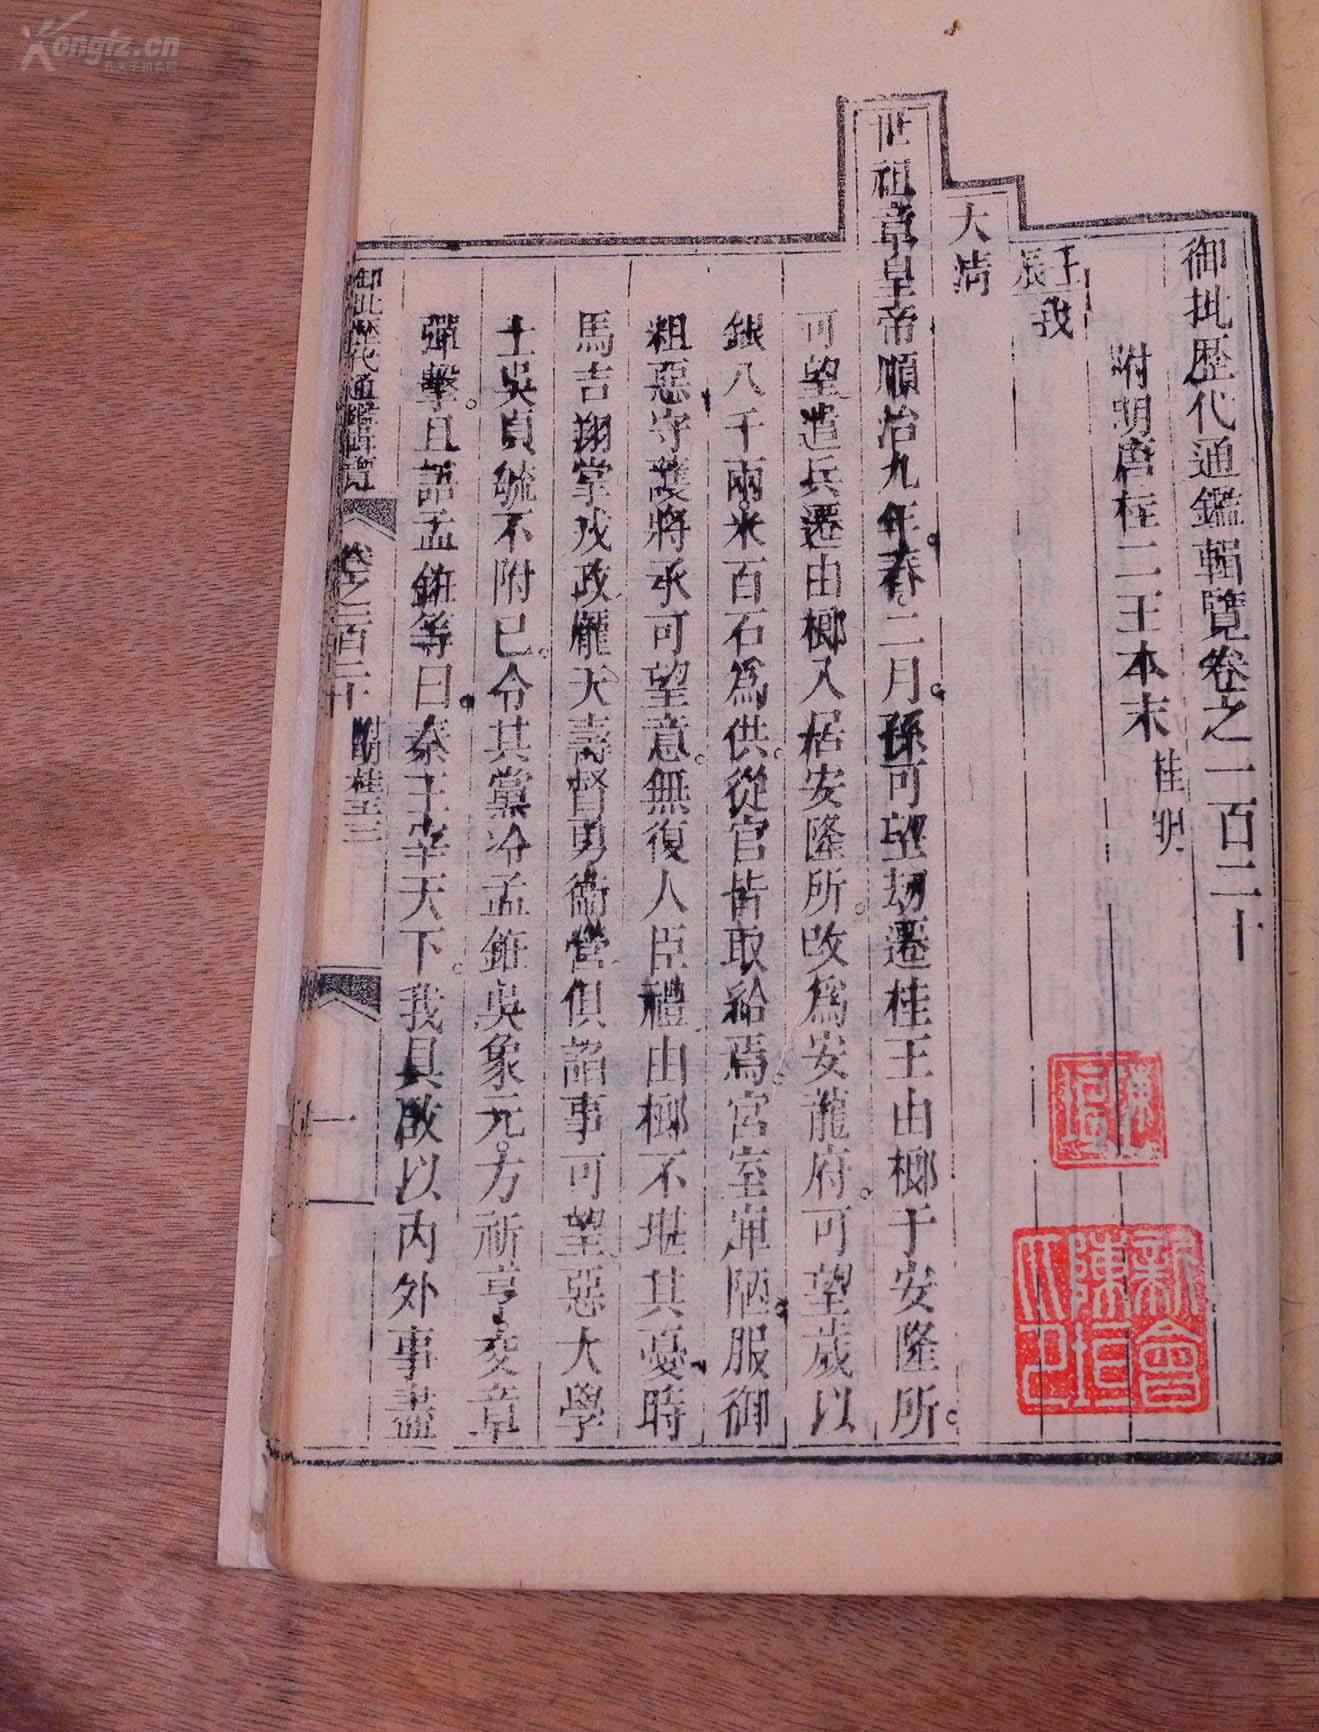 御批歷代通鑑輯覽卷之一百二十
附明唐桂二王本末
桂王
壬辰
我
大清
世祖章皇帝順治九年春二月孫可望劫遷桂王由榔于安隆所
可望遣兵遷由榔入居安隆所改爲安龍府可望歲以
銀八千兩米百石爲供從官皆取給焉宮室庳陋服御
粗惡守護將承可望意無復人臣禮由榔不堪其憂時
馬吉翔掌戎政龐天壽督勇衞營俱諂事可望惡大學
士吳貞毓不附已令其黨冷孟銋吳象元方祈亨交章
彈擊且語孟銋等曰秦王宰天下我具啟以內外事盡
御批歷代通鑑輯覽
卷之一百二十
附明桂王三
一
新會陳垣
陳垣
Kongfz.cn